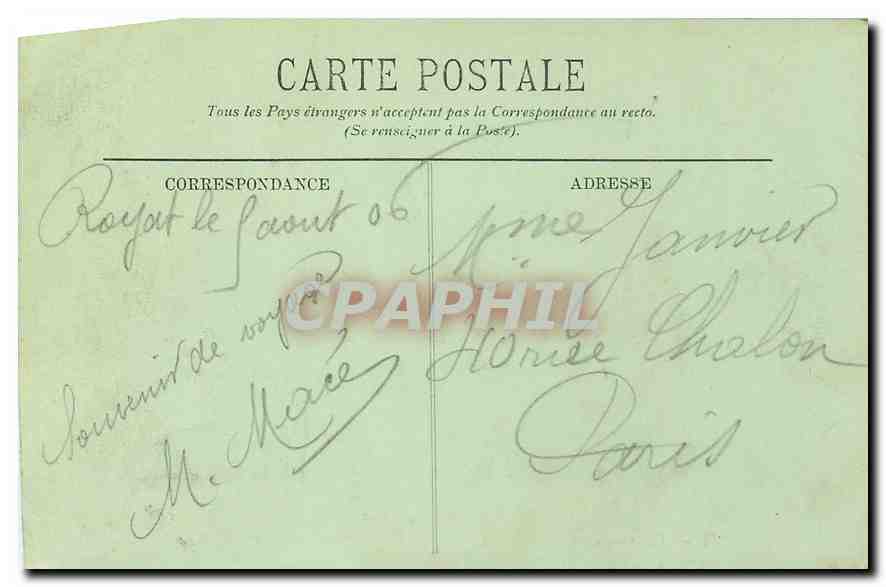 CARTE POSTALE
Tous les Pays étrangers n'acceptent pas la Correspondance au recto.
(Se renseigner à la Poste).
CORRESPONDANCE
Royat le 5 aout 06
Souvenir de voyage
M. Macé
ADRESSE
Mme Janvier
Chalon
Paris
CPAPHIL